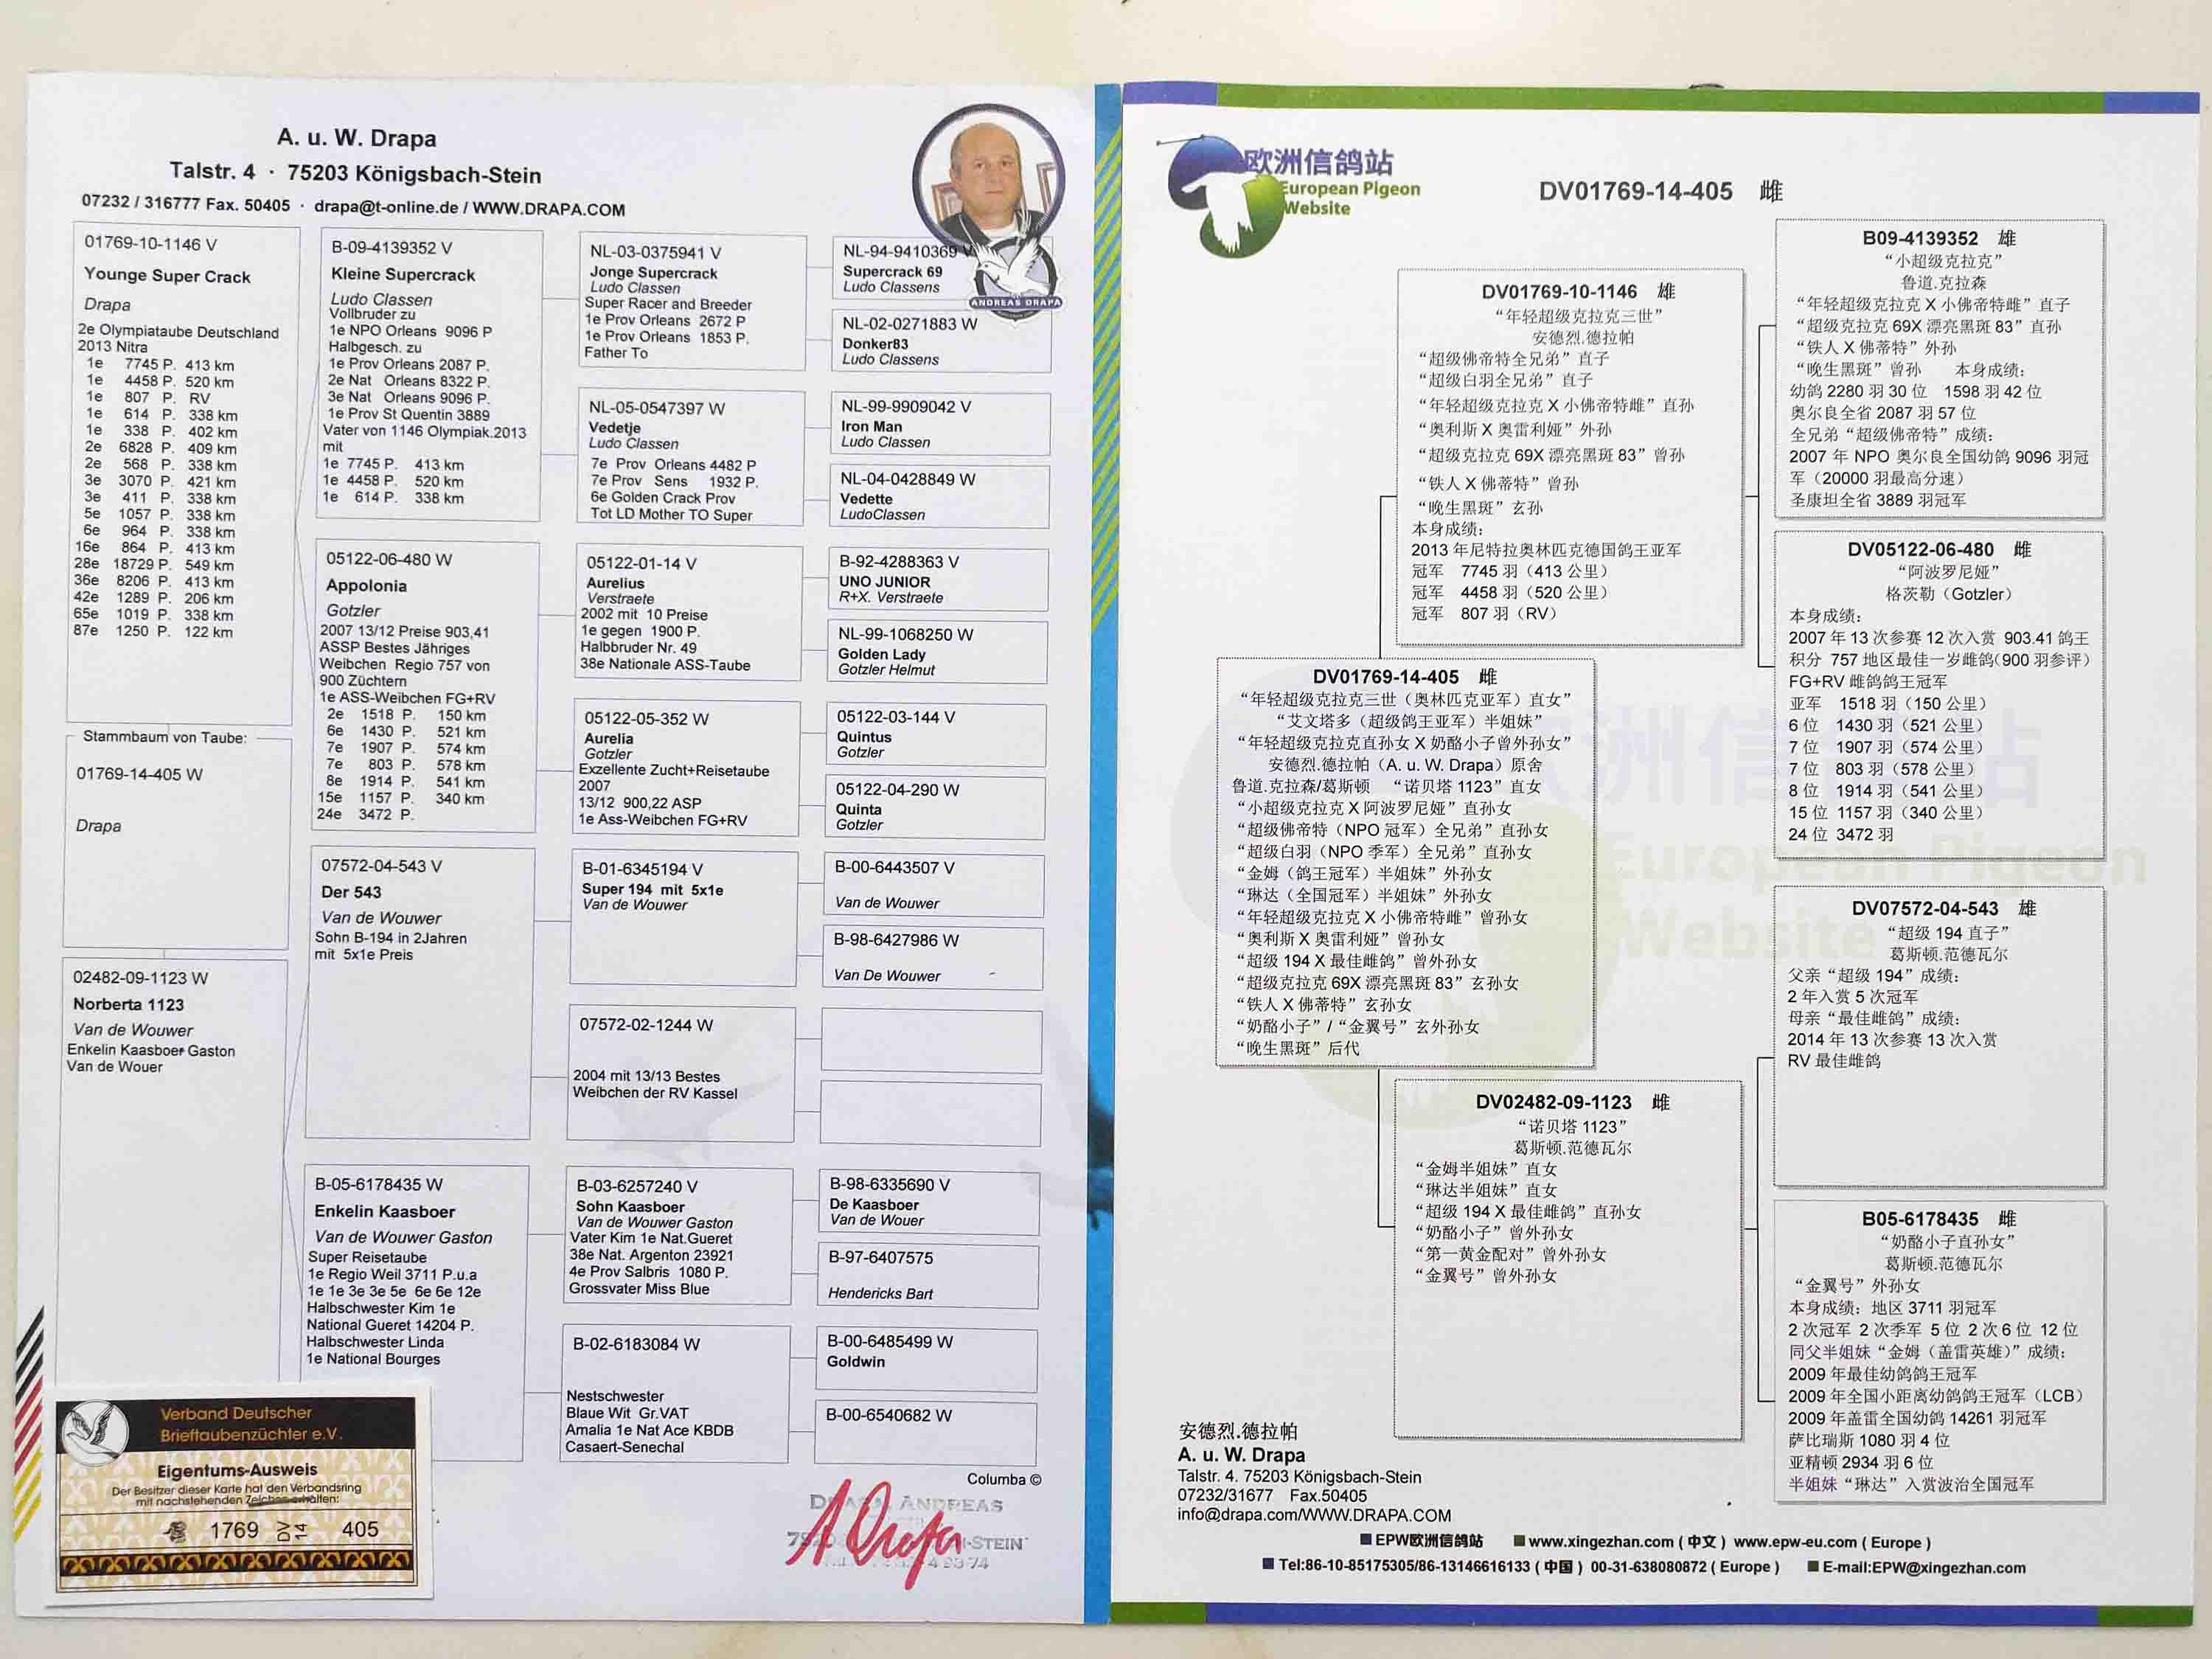 A. u. W. Drapa
Talstr. 4 · 75203 Königsbach-Stein
07232 / 316777 Fax. 50405 · drapa@t-online.de / WWW.DRAPA.COM
ANDREAS DRAPA
01769-10-1146 V
Younge Super Crack
Drapa
2e Olympiataube Deutschland
2013 Nitra
1e 7745 P. 413 km
1e 4458 P. 520 km
1e 807 P. RV
1e 614 P. 338 km
1e 338 P. 402 km
2e 6828 P. 409 km
2e 568 P. 338 km
3e 3070 P. 421 km
3e 411 P. 338 km
5e 1057 P. 338 km
6e 964 P. 338 km
16e 864 P. 413 km
28e 18729 P. 549 km
36e 8206 P. 413 km
42e 1289 P. 206 km
65e 1019 P. 338 km
87e 1250 P. 122 km
Stammbaum von Taube:
01769-14-405 W
Drapa
02482-09-1123 W
Norberta 1123
Van de Wouwer
Enkelin Kaasboer Gaston
Van de Wouer
B-09-4139352 V
Kleine Supercrack
Ludo Classen
Vollbruder zu
1e NPO Orleans 9096 P
Halbgesch. zu
1e Prov Orleans 2087 P.
2e Nat Orleans 8322 P.
3e Nat Orleans 9096 P.
1e Prov St Quentin 3889
Vater von 1146 Olympiak.2013
mit
1e 7745 P. 413 km
1e 4458 P. 520 km
1e 614 P. 338 km
05122-06-480 W
Appolonia
Gotzler
2007 13/12 Preise 903,41
ASSP Bestes Jähriges
Weibchen Regio 757 von
900 Züchtern
1e ASS-Weibchen FG+RV
2e 1518 P. 150 km
6e 1430 P. 521 km
7e 1907 P. 574 km
7e 803 P. 578 km
8e 1914 P. 541 km
15e 1157 P. 340 km
24e 3472 P.
07572-04-543 V
Der 543
Van de Wouwer
Sohn B-194 in 2Jahren
mit 5x1e Preis
B-05-6178435 W
Enkelin Kaasboer
Van de Wouwer Gaston
Super Reisetaube
1e Regio Weil 3711 P.u.a
1e 1e 3e 3e 5e 6e 6e 12e
Halbschwester Kim 1e
National Gueret 14204 P.
Halbschwester Linda
1e National Bourges
NL-03-0375941 V
Jonge Supercrack
Ludo Classen
Super Racer and Breeder
1e Prov Orleans 2672 P
1e Prov Orleans 1853 P.
Father To
NL-05-0547397 W
Vedetje
Ludo Classen
7e Prov Orleans 4482 P
7e Prov Sens 1932 P.
6e Golden Crack Prov
Tot LD Mother TO Super
05122-01-14 V
Aurelius
Verstraete
2002 mit 10 Preise
1e gegen 1900 P.
Halbbruder Nr. 49
38e Nationale ASS-Taube
05122-05-352 W
Aurelia
Gotzler
Exzellente Zucht+Reisetaube
2007
13/12 900,22 ASP
1e Ass-Weibchen FG+RV
B-01-6345194 V
Super 194 mit 5x1e
Van de Wouwer
07572-02-1244 W
2004 mit 13/13 Bestes
Weibchen der RV Kassel
B-03-6257240 V
Sohn Kaasboer
Van de Wouwer Gaston
Vater Kim 1e Nat.Gueret
38e Nat. Argenton 23921
4e Prov Salbris 1080 P.
Grossvater Miss Blue
B-02-6183084 W
Nestschwester
Blaue Wit Gr.VAT
Amalia 1e Nat Ace KBDB
Casaert-Senechal
NL-94-9410369 V
Supercrack 69
Ludo Classens
NL-02-0271883 W
Donker83
Ludo Classens
NL-99-9909042 V
Iron Man
Ludo Classen
NL-04-0428849 W
Vedette
LudoClassen
B-92-4288363 V
UNO JUNIOR
R+X. Verstraete
NL-99-1068250 W
Golden Lady
Gotzler Helmut
05122-03-144 V
Quintus
Gotzler
05122-04-290 W
Quinta
Gotzler
B-00-6443507 V
Van de Wouwer
B-98-6427986 W
Van De Wouwer
B-98-6335690 V
De Kaasboer
Van de Wouer
B-97-6407575
Hendericks Bart
B-00-6485499 W
Goldwin
B-00-6540682 W
Columba ©
ANDREAS
-STEIN
Verband Deutscher
Brieftaubenzüchter e.V.
Eigentums-Ausweis
Der Besitzer dieser Karte hat den Verbandsring
mit nachstehenden Zeichen erhalten:
1769 DV 14 405
欧洲信鸽站
European Pigeon
Website
DV01769-14-405 雌
DV01769-10-1146 雄
“年轻超级克拉克三世”
安德烈.德拉帕
“超级佛帝特全兄弟”直子
“超级白羽全兄弟”直子
“年轻超级克拉克 X 小佛帝特雌”直孙
“奥利斯 X 奥雷利娅”外孙
“超级克拉克 69X 漂亮黑斑 83”曾孙
“铁人 X 佛蒂特”曾孙
“晚生黑斑”玄孙
本身成绩：
2013 年尼特拉奥林匹克德国鸽王亚军
冠军 7745 羽（413 公里）
冠军 4458 羽（520 公里）
冠军 807 羽（RV）
DV01769-14-405 雌
“年轻超级克拉克三世（奥林匹克亚军）直女”
“艾文塔多（超级鸽王亚军）半姐妹”
“年轻超级克拉克直孙女 X 奶酪小子曾外孙女”
安德烈.德拉帕（A. u. W. Drapa）原舍
鲁道.克拉森/葛斯顿 “诺贝塔 1123”直女
“小超级克拉克 X 阿波罗尼娅”直孙女
“超级佛帝特（NPO 冠军）全兄弟”直孙女
“超级白羽（NPO 季军）全兄弟”直孙女
“金姆（鸽王冠军）半姐妹”外孙女
“琳达（全国冠军）半姐妹”外孙女
“年轻超级克拉克 X 小佛帝特雌”曾孙女
“奥利斯 X 奥雷利娅”曾孙女
“超级 194 X 最佳雌鸽”曾外孙女
“超级克拉克 69X 漂亮黑斑 83”玄孙女
“铁人 X 佛蒂特”玄孙女
“奶酪小子”/“金翼号”玄外孙女
“晚生黑斑”后代
DV02482-09-1123 雌
“诺贝塔 1123”
葛斯顿.范德瓦尔
“金姆半姐妹”直女
“琳达半姐妹”直女
“超级 194 X 最佳雌鸽”直孙女
“奶酪小子”曾外孙女
“第一黄金配对”曾外孙女
“金翼号”曾外孙女
B09-4139352 雄
“小超级克拉克”
鲁道.克拉森
“年轻超级克拉克 X 小佛帝特雌”直子
“超级克拉克 69X 漂亮黑斑 83”直孙
“铁人 X 佛蒂特”外孙
“晚生黑斑”曾孙 本身成绩：
幼鸽 2280 羽 30 位 1598 羽 42 位
奥尔良全省 2087 羽 57 位
全兄弟“超级佛帝特”成绩：
2007 年 NPO 奥尔良全国幼鸽 9096 羽冠
军（20000 羽最高分速）
圣康坦全省 3889 羽冠军
DV05122-06-480 雌
“阿波罗尼娅”
格茨勒（Gotzler）
本身成绩：
2007 年 13 次参赛 12 次入赏 903.41 鸽王
积分 757 地区最佳一岁雌鸽（900 羽参评）
FG+RV 雌鸽鸽王冠军
亚军 1518 羽（150 公里）
6 位 1430 羽（521 公里）
7 位 1907 羽（574 公里）
7 位 803 羽（578 公里）
8 位 1914 羽（541 公里）
15 位 1157 羽（340 公里）
24 位 3472 羽
DV07572-04-543 雄
“超级 194 直子”
葛斯顿.范德瓦尔
父亲“超级 194”成绩：
2 年入赏 5 次冠军
母亲“最佳雌鸽”成绩：
2014 年 13 次参赛 13 次入赏
RV 最佳雌鸽
B05-6178435 雌
“奶酪小子直孙女”
葛斯顿.范德瓦尔
“金翼号”外孙女
本身成绩：地区 3711 羽冠军
2 次冠军 2 次季军 5 位 2 次 6 位 12 位
同父半姐妹“金姆（盖雷英雄）”成绩：
2009 年最佳幼鸽鸽王冠军
2009 年全国小距离幼鸽鸽王冠军（LCB）
2009 年盖雷全国幼鸽 14261 羽冠军
萨比瑞斯 1080 羽 4 位
亚精顿 2934 羽 6 位
半姐妹“琳达”入赏波治全国冠军
安德烈.德拉帕
A. u. W. Drapa
Talstr. 4. 75203 Königsbach-Stein
07232/31677 Fax.50405
info@drapa.com/WWW.DRAPA.COM
EPW欧洲信鸽站 www.xingezhan.com ( 中文 ) www.epw-eu.com ( Europe )
Tel:86-10-85175305/86-13146616133 ( 中国 ) 00-31-638080872 ( Europe ) E-mail:EPW@xingezhan.com